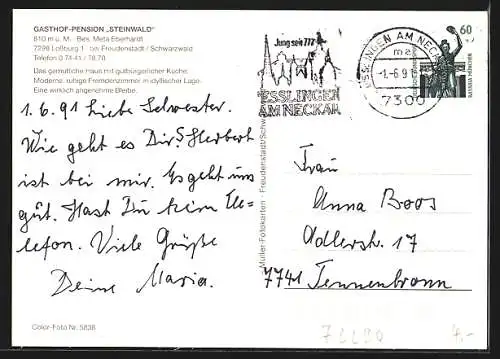 GASTHOF-PENSION „STEINWALD"
610 m ü. M. · Bes. Meta Eberhardt
7298 Loßburg 1 · bei Freudenstadt / Schwarzwald
Telefon 0 74 41 / 78 78
Das gemütliche Haus mit gutbürgerlicher Küche.
Moderne, ruhige Fremdenzimmer in idyllischer Lage.
Eine wirklich angenehme Bleibe.
1. 6. 91 Liebe Schwester.
Wie geht es Dir? Herbert
ist bei mir. Es geht uns
gut. Hast Du kein Te-
lefon. Viele Grüße
Deine Maria.
Color-Foto Nr. 5838
Müller-Fotokarten · Freudenstadt/Schw
Jung seit 777
ESSLINGEN
AM NECKAR
ESSLINGEN AM NECK
ma
-1.-6.91
7300
60
BAVARIA MÜNCHEN
DEUTSCHE BUNDESPOST
Frau
Anna Boos
Adlerstr. 17
7741 Tennenbronn
4.-